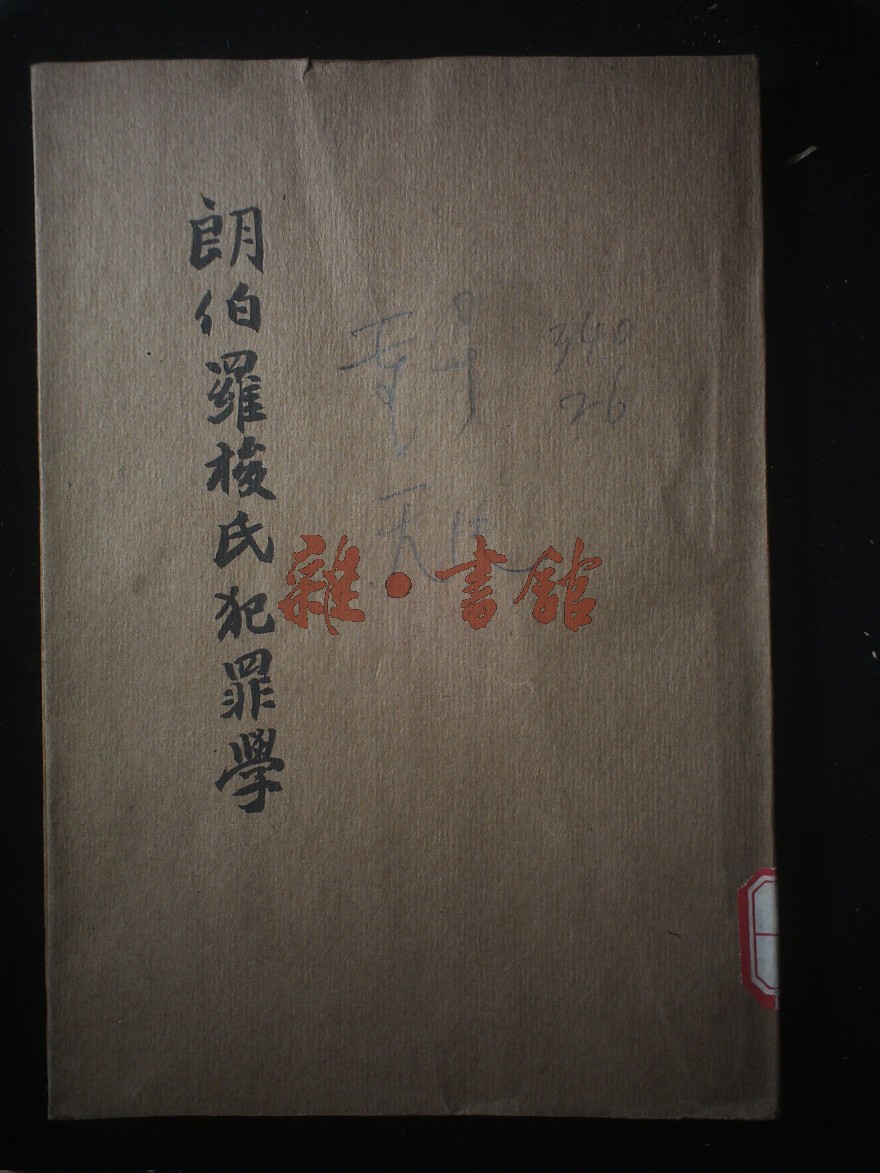 朗伯羅梭氏犯罪學
340
26
雜·書館